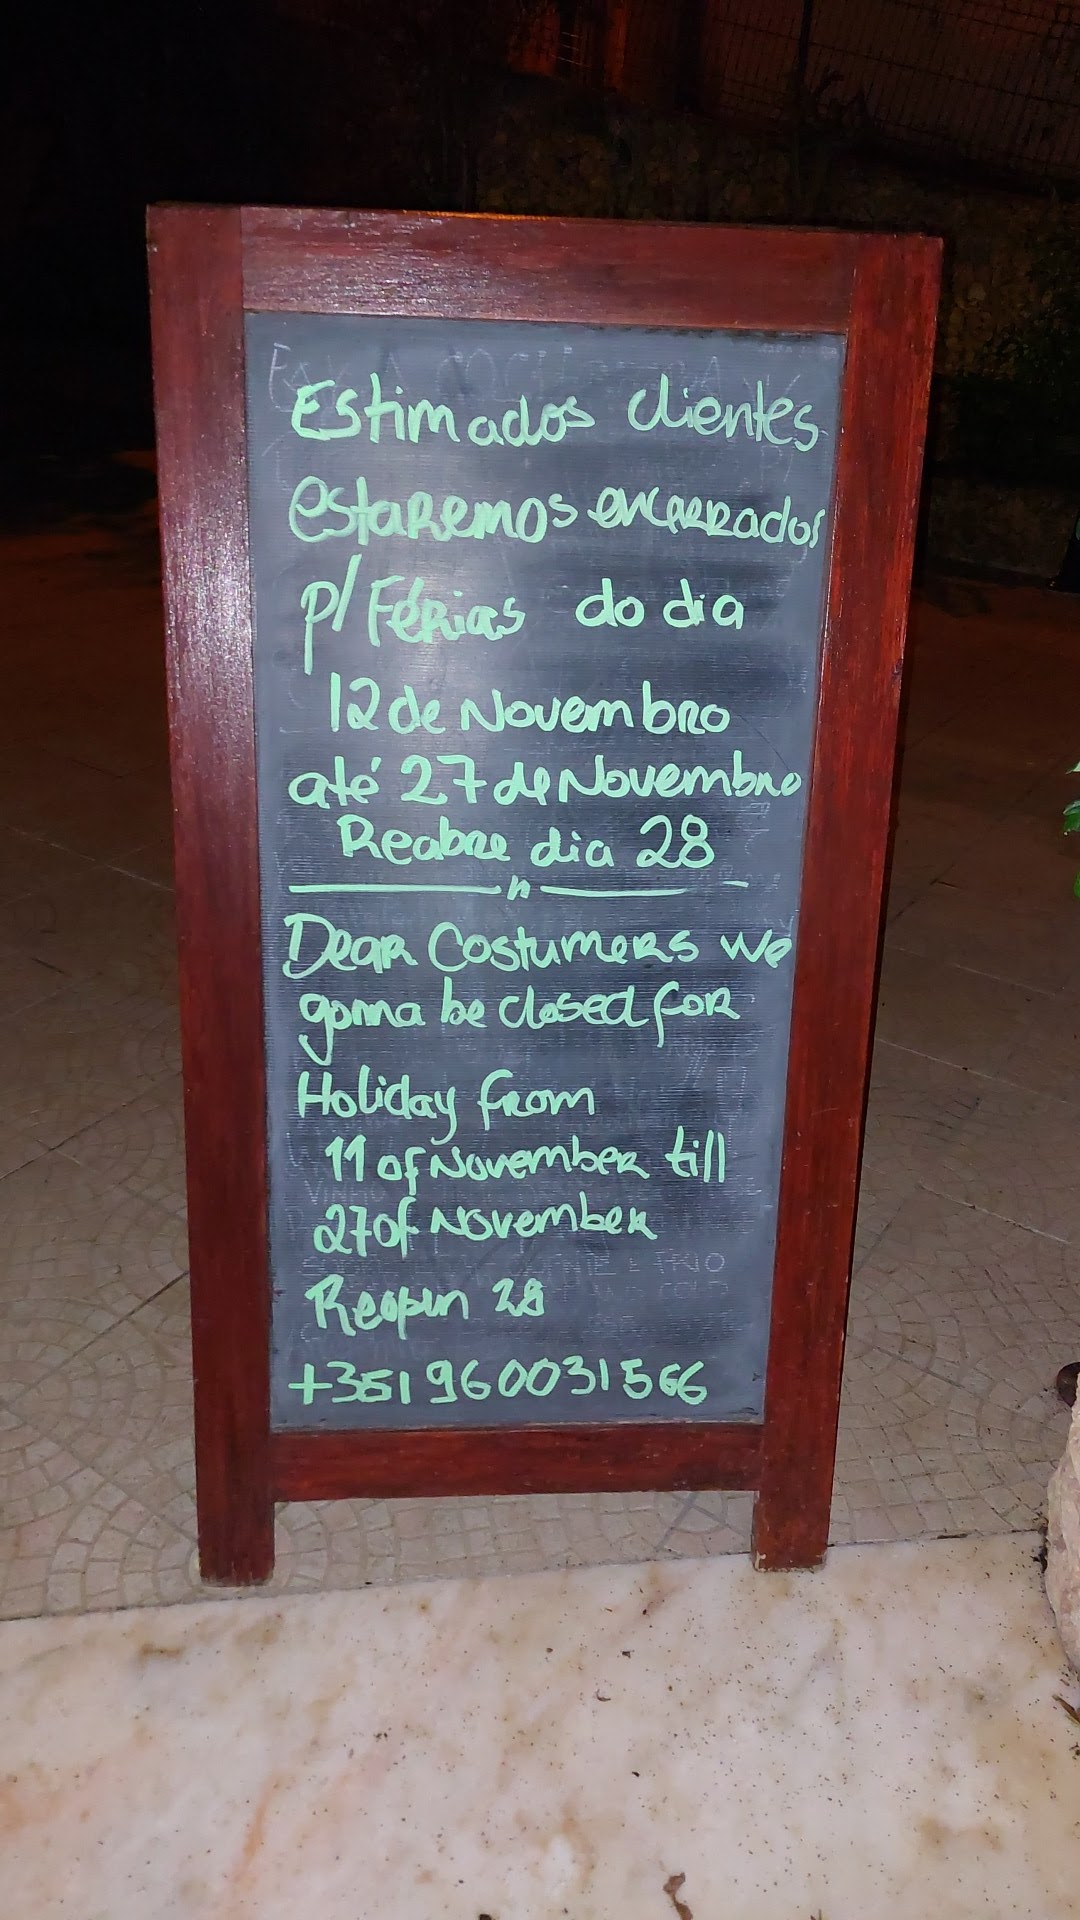 Estimados clientes
estaremos encerrados
p/ Férias do dia
12 de Novembro
até 27 de Novembro
Reabre dia 28
Dear Costumers we
gonna be closed for
Holiday from
11 of November till
27 of November
Reopen 28
+351 960031566